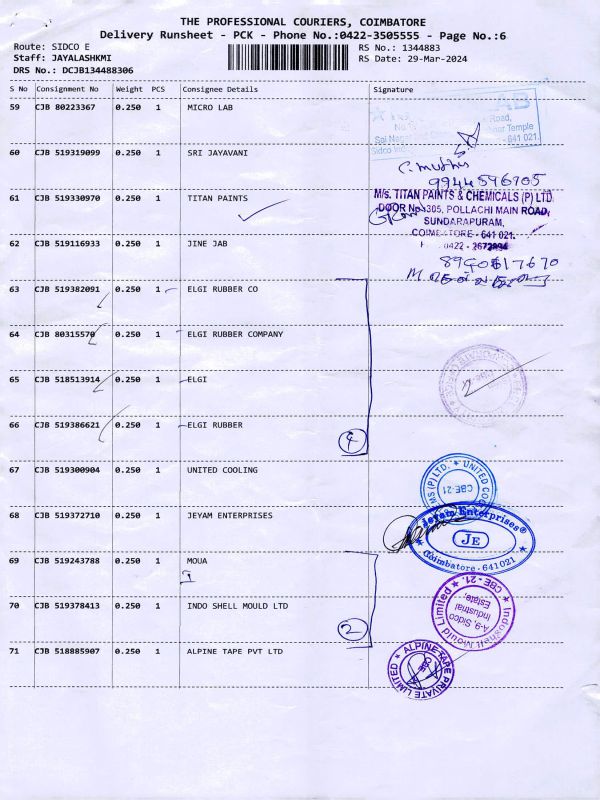 THE PROFESSIONAL COURIERS, COIMBATORE
Delivery Runsheet - PCK - Phone No.:0422-3505555 - Page No.:6
Route: SIDCO E
RS No.: 1344883
Staff: JAYALASHKMI
RS Date: 29-Mar-2024
DRS No.: DCJB134488306
S No Consignment No Weight PCS Consignee Details Signature
59 CJB 80223367 0.250 1 MICRO LAB
Road,
Temple
641 021.
60 CJB 519319099 0.250 1 SRI JAYAVANI
9944596705
61 CJB 519330970 0.250 1 TITAN PAINTS
M/s. TITAN PAINTS & CHEMICALS (P) LTD
DOOR No 305, POLLACHI MAIN ROAD,
SUNDARAPURAM,
COIMBATORE - 641 021.
62 CJB 519116933 0.250 1 JINE JAB
0422
63 CJB 519382091 0.250 1 ELGI RUBBER CO
64 CJB 80315570 0.250 1 ELGI RUBBER COMPANY
65 CJB 518513914 0.250 1 ELGI
66 CJB 519386621 0.250 1 ELGI RUBBER
4
67 CJB 519300904 0.250 1 UNITED COOLING
MS (P) LTD. ★ UNITED
CBE-21
68 CJB 519372710 0.250 1 JEYAM ENTERPRISES
Jeyam Enterprises
JE
Coimbatore - 641021
69 CJB 519243788 0.250 1 MOUA
70 CJB 519378413 0.250 1 INDO SHELL MOULD LTD
2
Indoshell Mould Limited ★ CBE - 21. ★
A-9, Sidco
Industrial
Estate,
71 CJB 518885907 0.250 1 ALPINE TAPE PVT LTD
★ ALPINE TAPE PRIVATE LIMITED
CBE